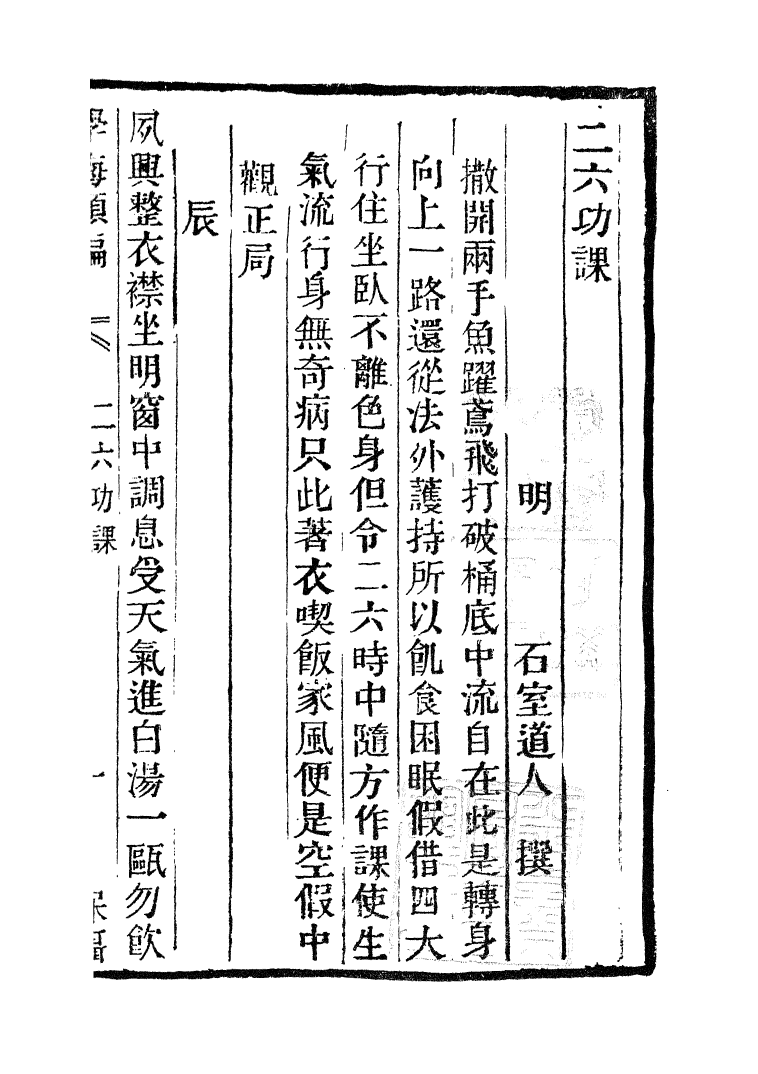 二六功課
明　石室道人　撰
撒開兩手魚躍鳶飛打破桶底中流自在此是轉身
向上一路還從法外護持所以飢食困眠假借四大
行住坐臥不離色身但令二六時中隨方作課使生
氣流行身無奇病只此著衣喫飯家風便是空假中
觀正局
辰
夙興整衣襟坐明窗中調息受天氣進白湯一甌勿飲
學海類編　二六功課　一　保攝